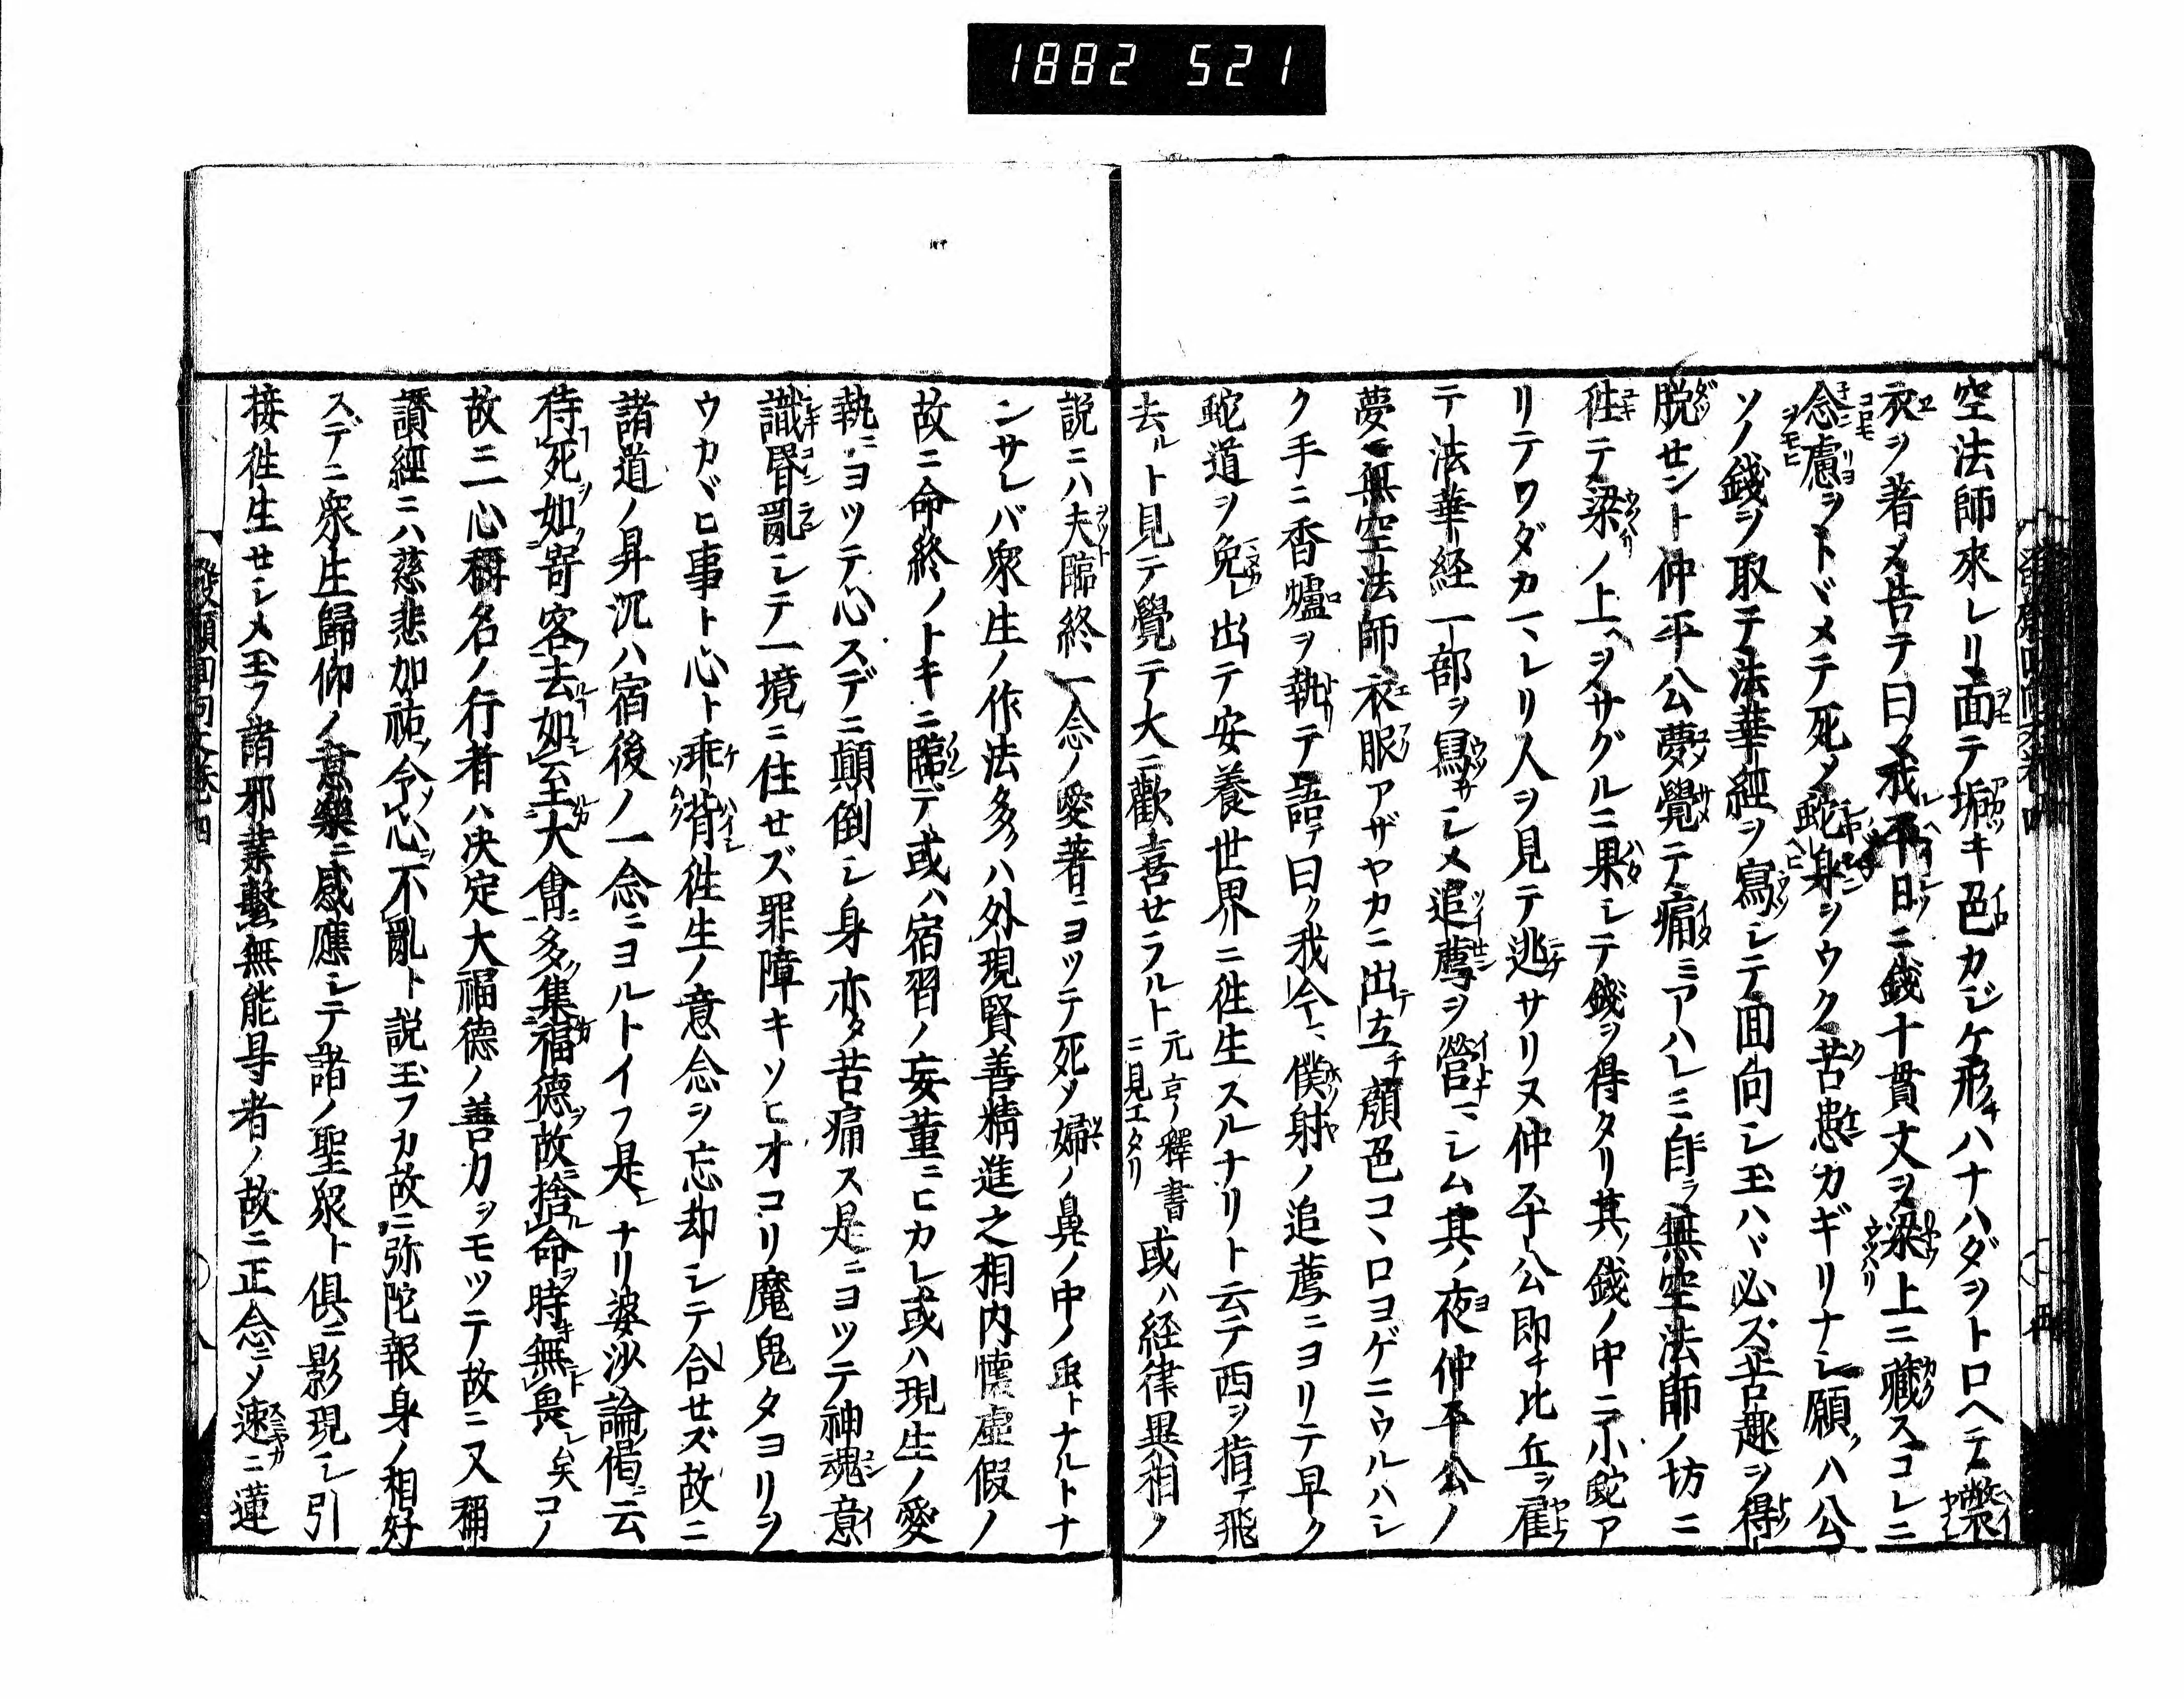 1882 521
空法師來レリ面テ垢キ色カジケ形ハナハダヲトロヘテ弊
衣ヲ著メ告テ曰ク我レ平日ニ錢十貫文ヲ梁上ニ藏スコレニ
念慮ヲトヾメテ死ノ蛇身ヲウク苦患カギリナシ願クハ公
ソノ錢ヲ取テ法華經ヲ寫シテ囬向シ玉ハヾ必ズ苦趣ヲ得
脱セント仲平公夢覺テ痛ミアハレミ自ラ無空法師ノ坊ニ
徃テ梁ノ上ヘヲサグルニ果シテ錢ヲ得タリ其ノ錢ノ中ニ小蛇ア
リテワダカマレリ人ヲ見テ逃サリヌ仲平公即チ比丘ヲ雇
テ法華経一部ヲ寫サシメ追薦ヲ營マシム其ノ夜仲平公ノ
夢ニ無空法師衣服アザヤカニ出立チ顔色コヽロヨゲニウルハシ
ク手ニ香爐ヲ執テ語テ曰ク我今マ僕射ノ追薦ニヨリテ早ク
蛇道ヲ免レ出テ安養世界ニ徃生スルナリト云テ西ヲ指テ飛
去ルト見テ覺テ大ニ歡喜セラルト元亨釋書ニ見エタリ或ハ経律異相ノ
説ニハ夫臨終一念ノ愛著ニヨツテ死メ婦ノ鼻ノ中ノ虫トナルトナ
ンサレバ衆生ノ作法多クハ外現賢善精進之相内懷虛假ノ
故ニ命終ノトキニ臨デ或ハ宿習ノ妄薫ニヒカレ或ハ現生ノ愛
執ニヨツテ心スデニ顛倒シ身亦タ苦痛ス是ニヨツテ神魂意
識昬亂シテ一境ニ住セズ罪障キソヒオコリ魔鬼タヨリヲ
ウカヾヒ事ト心ト乖背徃生ノ意念ヲ忘却シテ合セズ故ニ
諸道ノ昇沉ハ宿後ノ一念ニヨルトイフ是レナリ婆沙論偈ニ云
待死如寄客去如至大會多集福德故捨命時無畏矣コノ
故ニ一心稱名ノ行者ハ決定大福德ノ善力ヲモツテ故ニ又稱
讚經ニハ慈悲加祐令心不亂ト説玉フカ故ニ弥陀報身ノ相好
スデニ衆生歸仰ノ意樂ニ感應シテ諸ノ聖衆ト俱ニ影現シ引
接徃生セシメ玉フ諸邪業繫無能㝵者ノ故ニ正念ニメ速ニ蓮